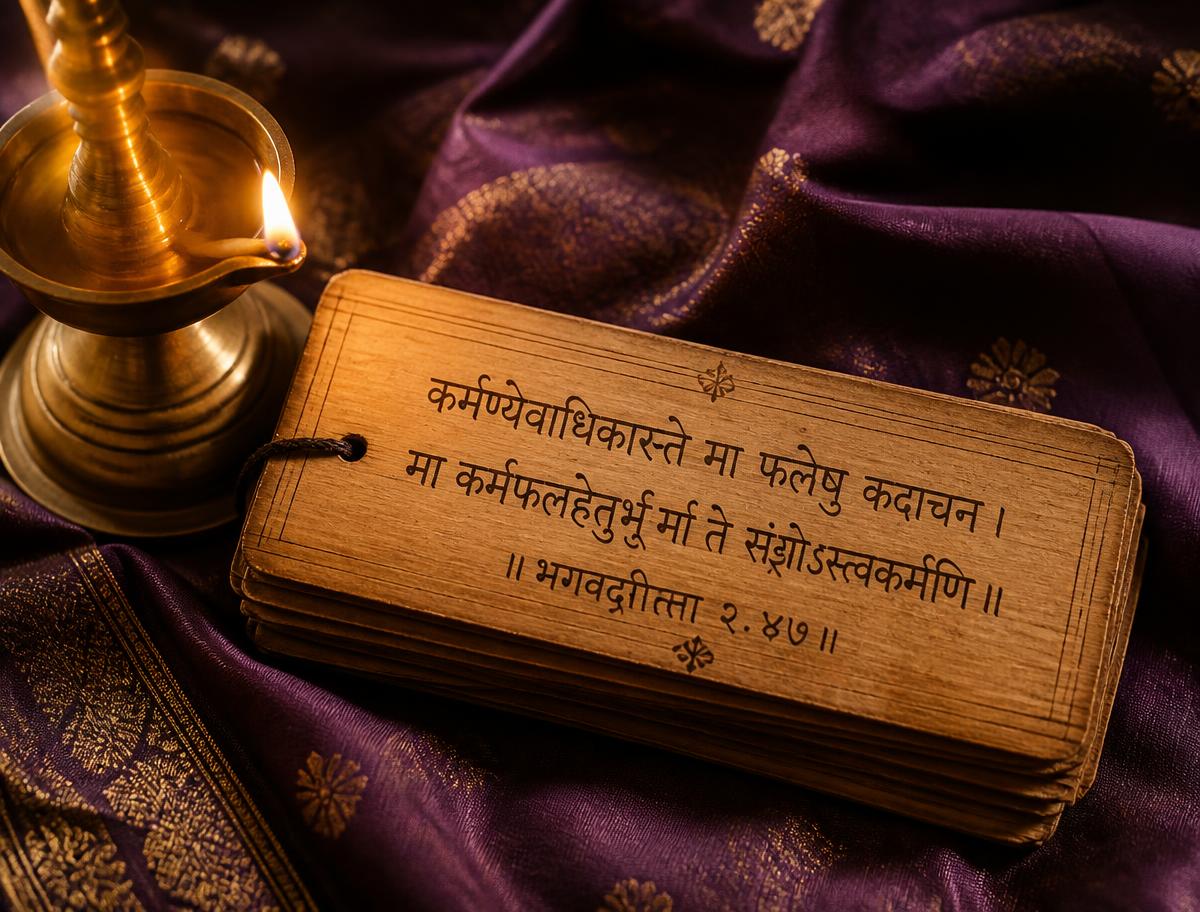 कर्मण्येवाधिकारस्ते मा फलेषु कदाचन ।
मा कर्मफलहेतुर्भू र्मा ते ऽस्त्वकर्मणि ॥
॥ २.४७ ॥